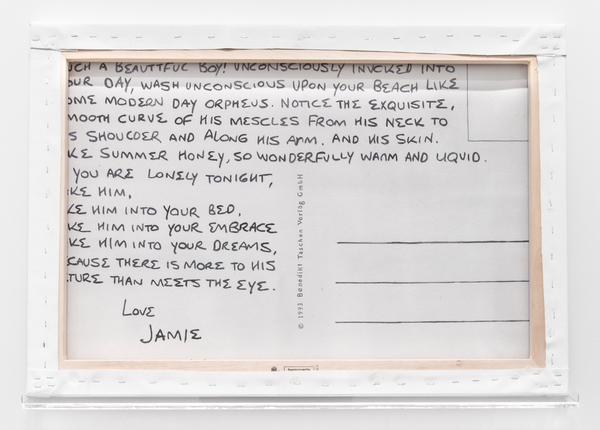 UCH A BEAUTIFUL BOY! UNCONSCIOUSLY INVOKED INTO
OUR DAY, WASH UNCONSCIOUS UPON YOUR BEACH LIKE
OME MODERN DAY ORPHEUS. NOTICE THE EXQUISITE,
MOOTH CURVE OF HIS MESCLES FROM HIS NECK TO
S SHOULDER AND ALONG HIS ARM. AND HIS SKIN.
KE SUMMER HONEY, SO WONDERFULLY WARM AND LIQUID.
YOU ARE LONELY TONIGHT,
KE HIM,
KE HIM INTO YOUR BED,
KE HIM INTO YOUR EMBRACE
KE HIM INTO YOUR DREAMS,
CAUSE THERE IS MORE TO HIS
TURE THAN MEETS THE EYE.
LOVE
JAMIE
© 1993 Benedikt Taschen Verlag GmbH